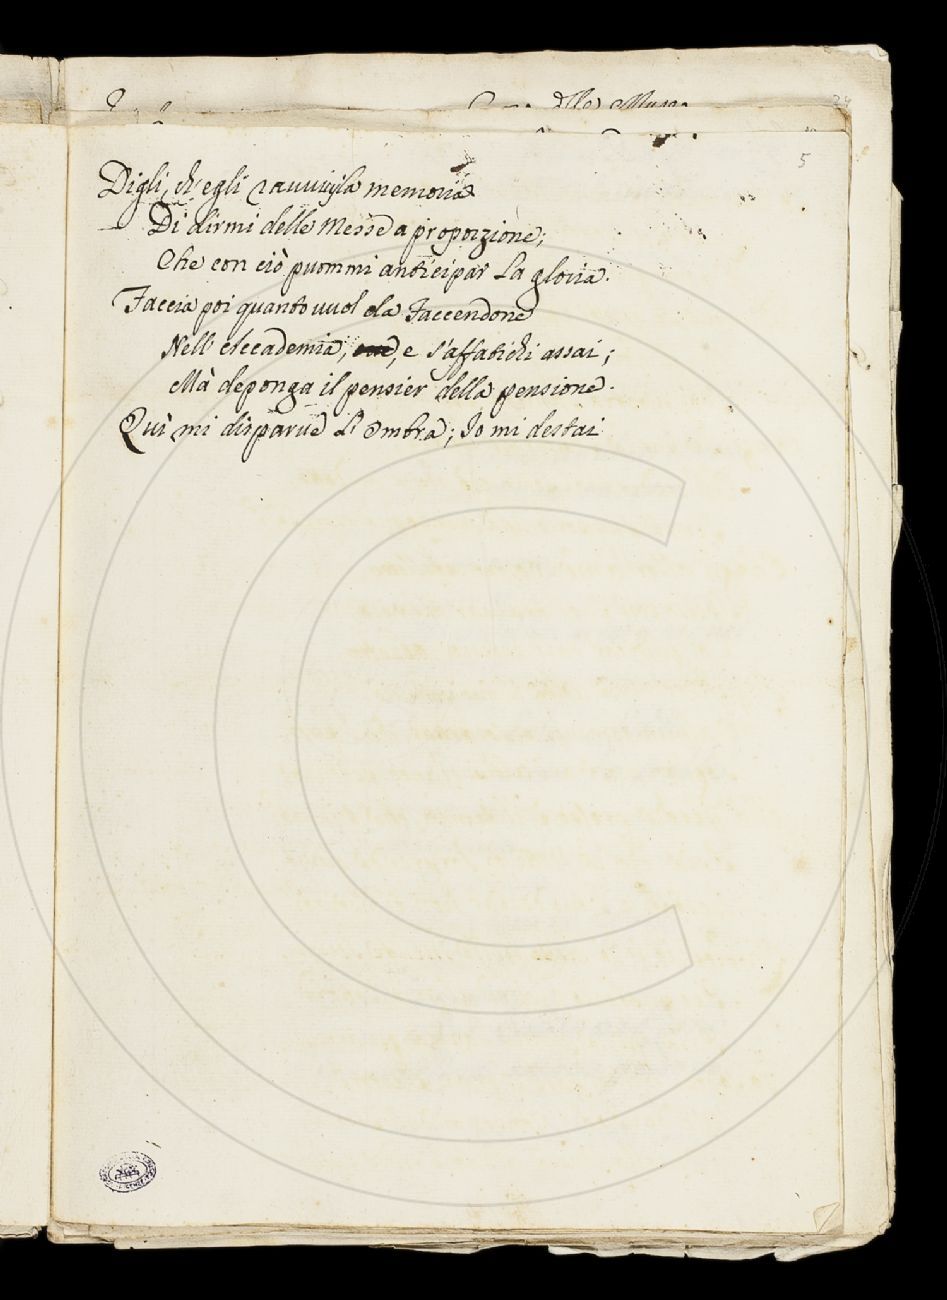 delle Muse
24
5
Digli, ch'egli ravvivi la memoria
Di dirmi delle Messe a proporzione;
Che con ciò puommi anticipar la gloria.
Faccia poi quanto vuol da Faccendone
Nell'Accademia, e s'affatichi assai;
Mà deponga il pensier della pensione.
Quì mi disparve l'Ombra; Io mi destai